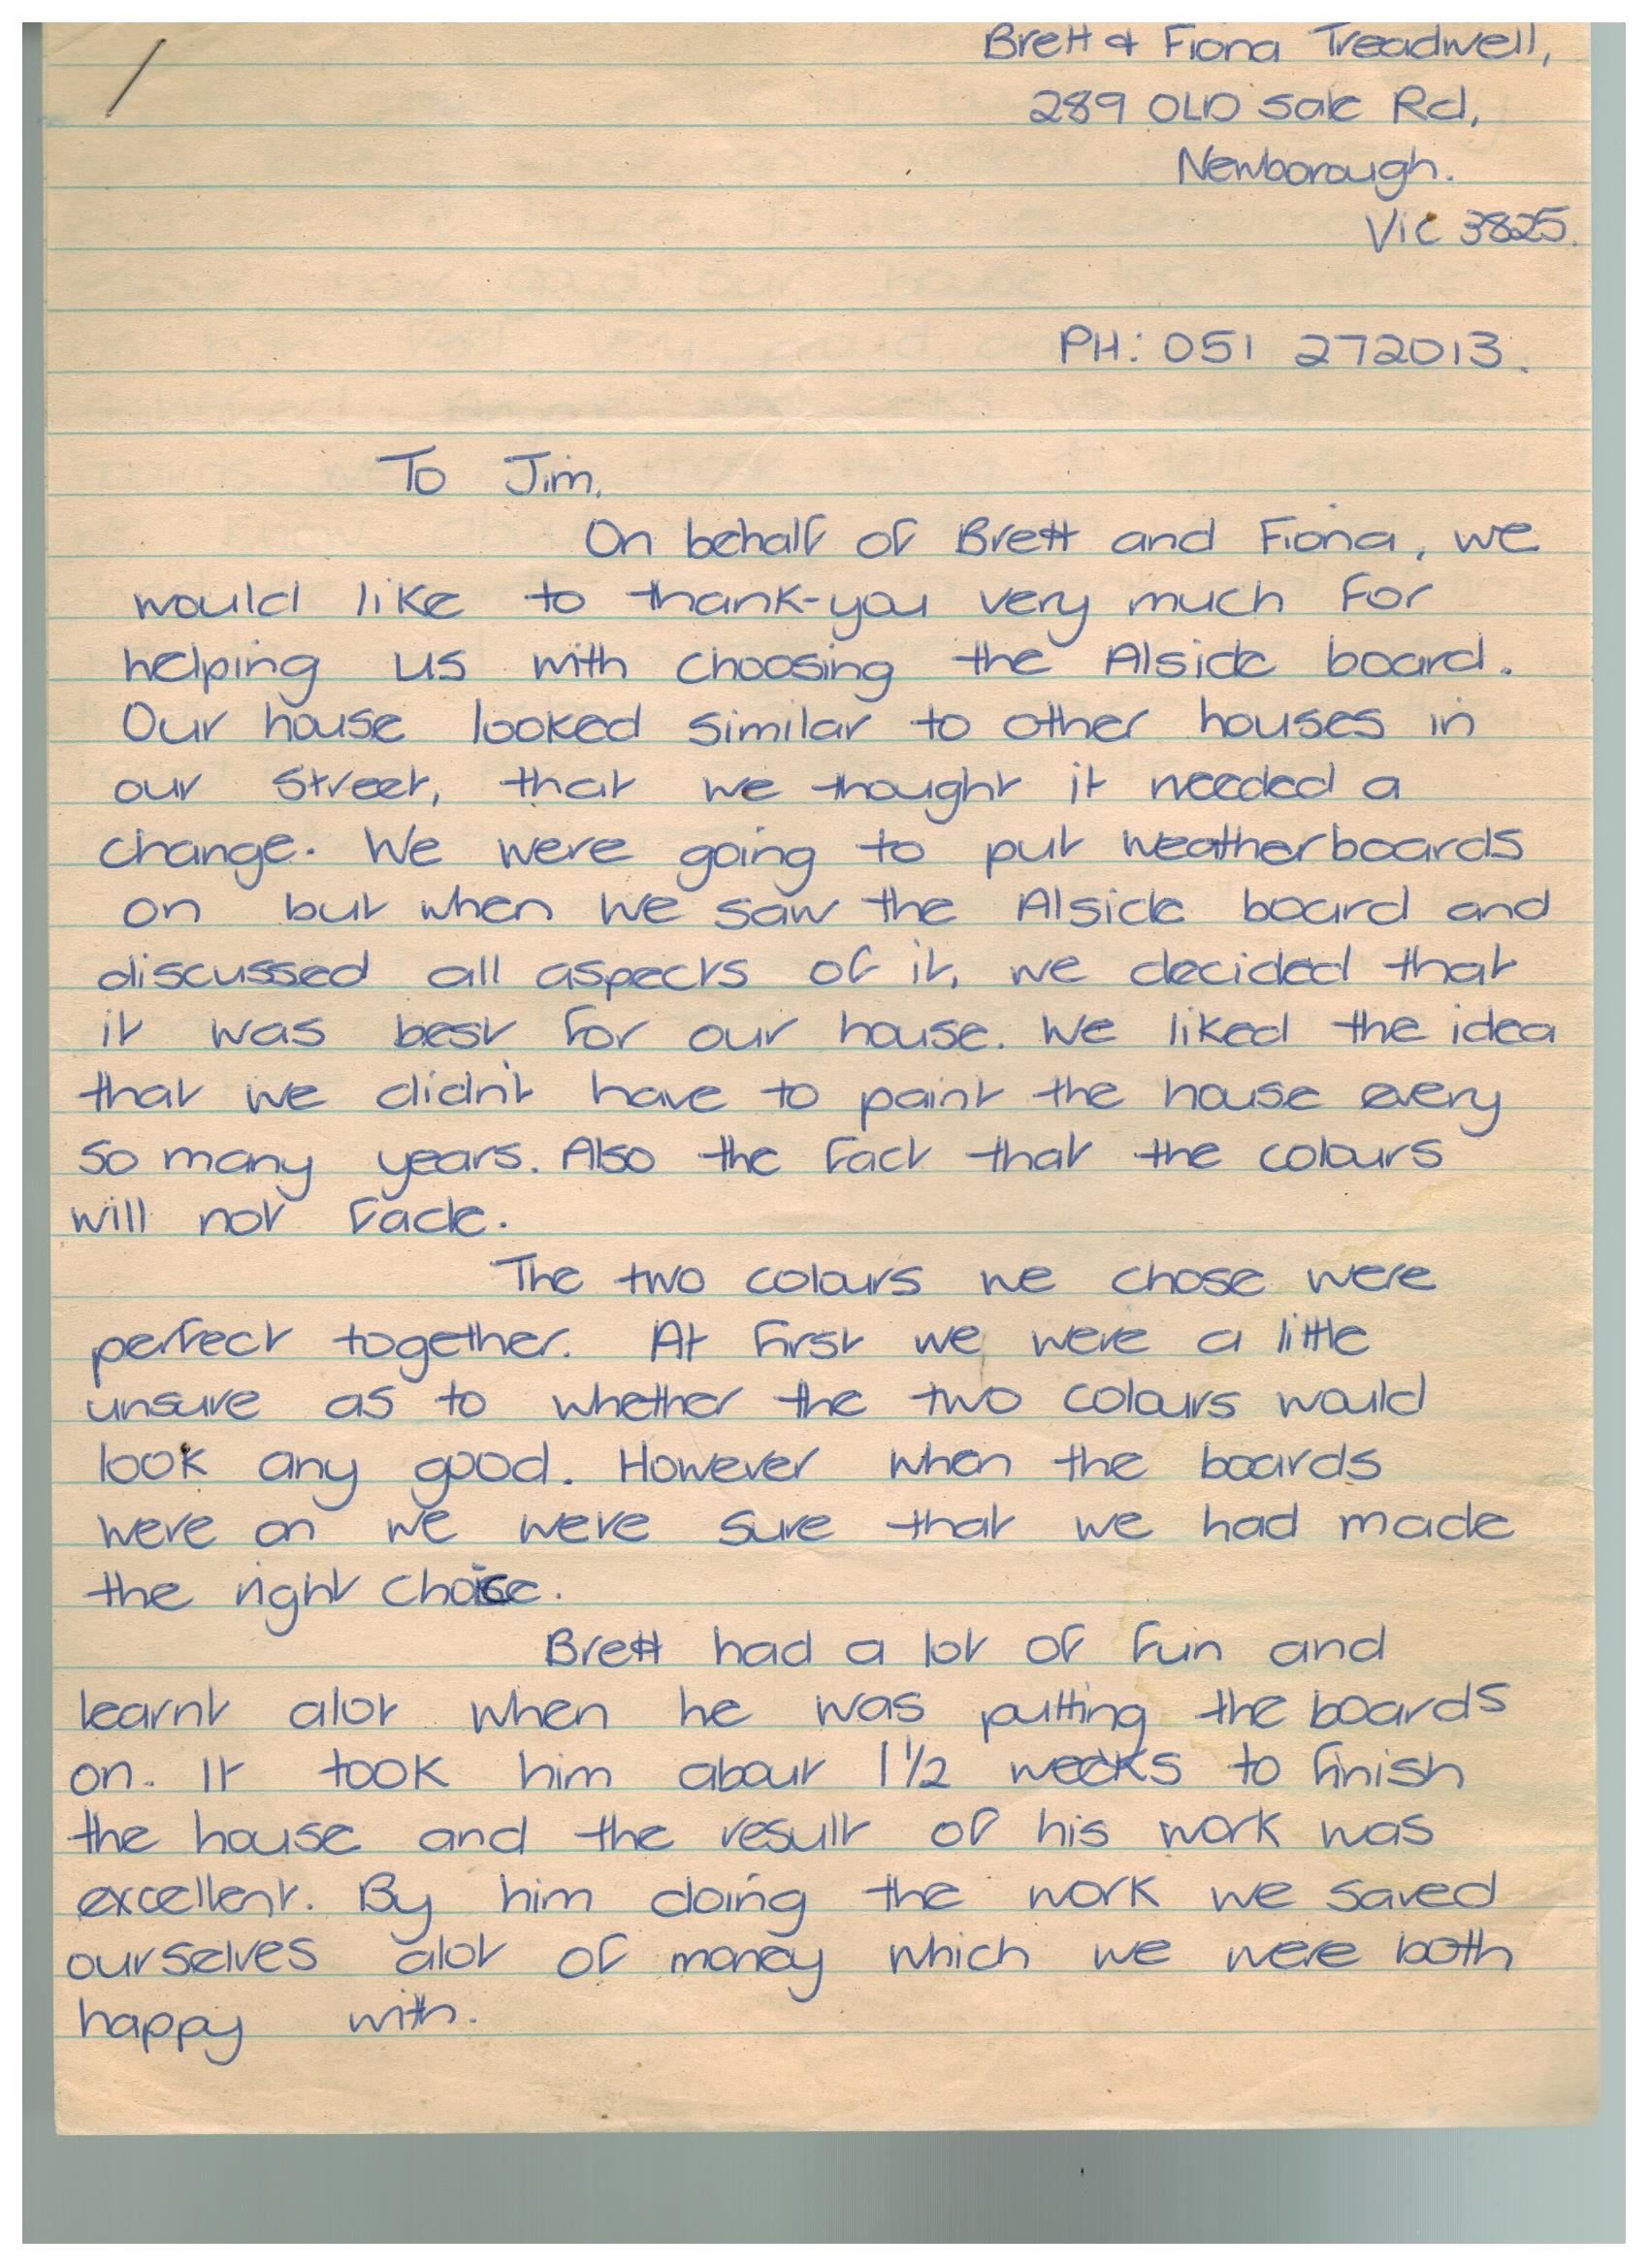 Brett & Fiona Treadwell,
289 OLD Sale Rd,
Newborough.
Vic 3825.
PH: 051 272013.
To Jim,
On behalf of Brett and Fiona, we
would like to thank-you very much for
helping us with choosing the Alside board.
Our house looked similar to other houses in
our street, that we thought it needed a
change. We were going to put weatherboards
on but when we saw the Alside board and
discussed all aspects of it, we decided that
it was best for our house. We liked the idea
that we didn't have to paint the house every
so many years. Also the fact that the colours
will not fade.
The two colours we chose were
perfect together. At first we were a little
unsure as to whether the two colours would
look any good. However when the boards
were on we were sure that we had made
the right choice.
Brett had a lot of fun and
learnt alot when he was putting the boards
on. It took him about 1 1/2 weeks to finish
the house and the result of his work was
excellent. By him doing the work we saved
ourselves alot of money which we were both
happy with.